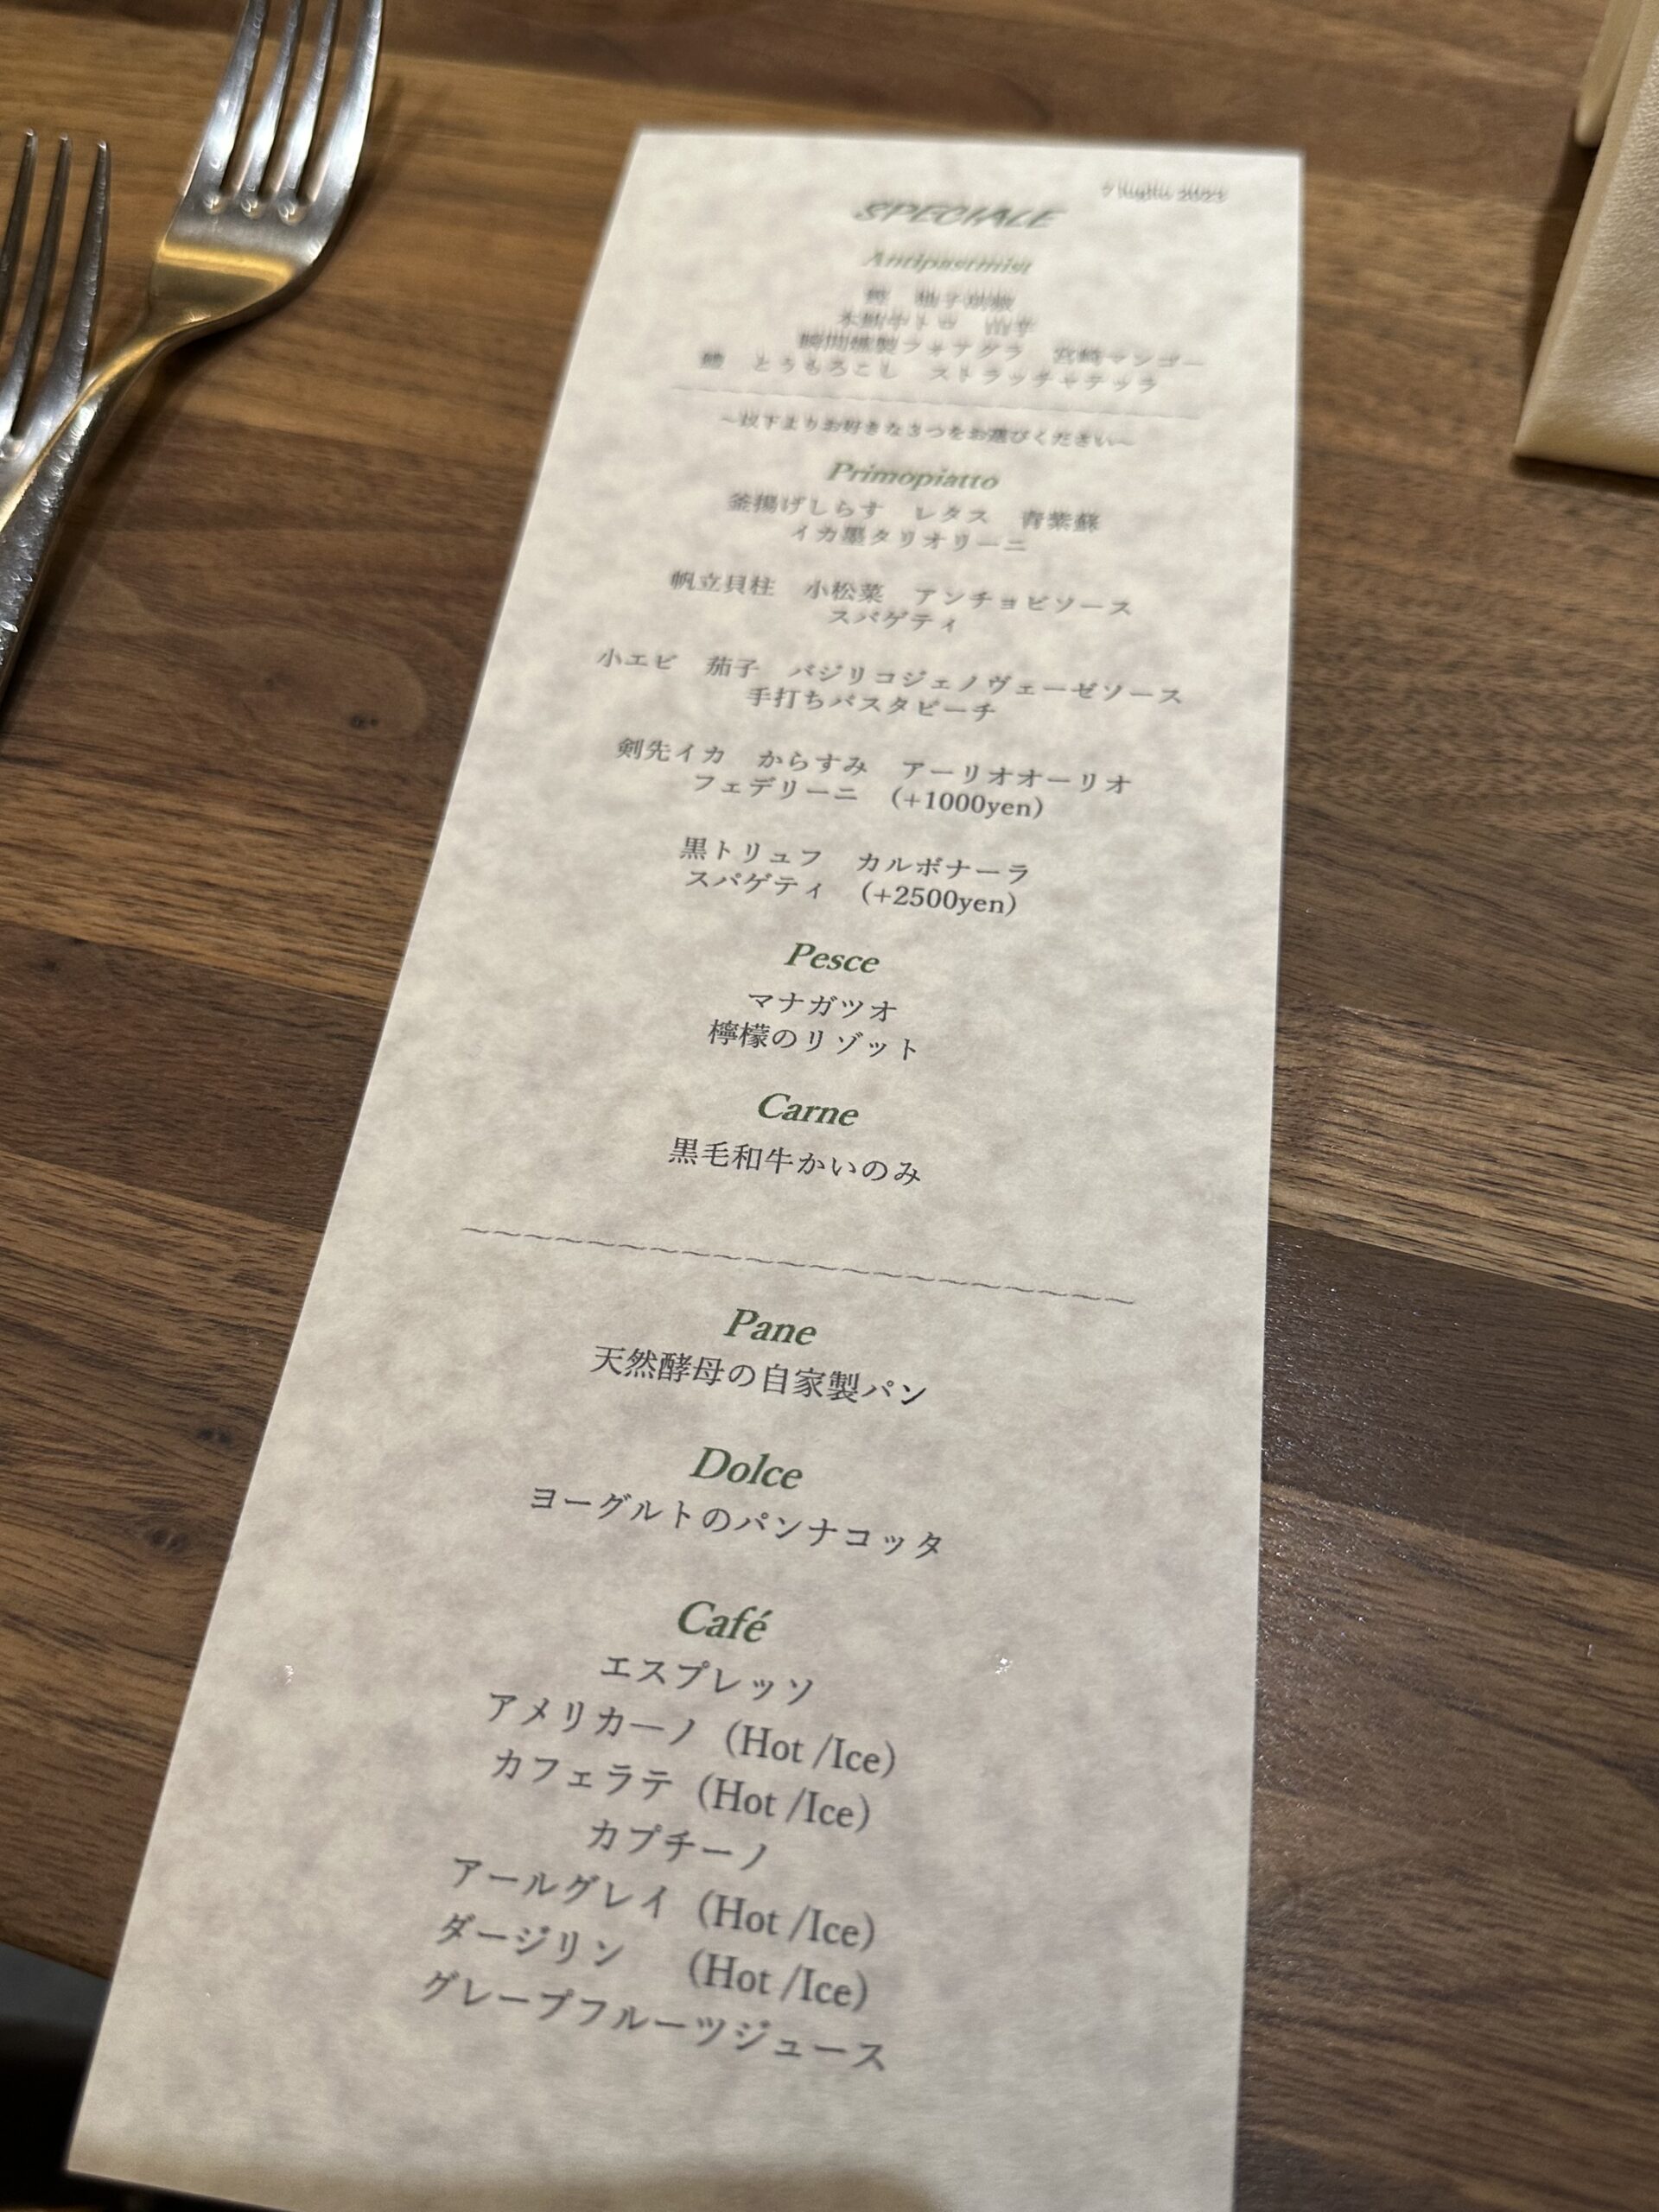 luglio 2023
SPECIALE
Antipastmist
柚子胡椒
瞬間燻製フォアグラ　宮崎マンゴー
とうもろこし　ストラッチャテッラ
~以下よりお好きな3つをお選びください~
Primopiatto
釜揚げしらす　レタス　青紫蘇
イカ墨タリオリーニ
帆立貝柱　小松菜　アンチョビソース
スパゲティ
小エビ　茄子　バジリコジェノヴェーゼソース
手打ちパスタピーチ
剣先イカ　からすみ　アーリオオーリオ
フェデリーニ　(+1000yen)
黒トリュフ　カルボナーラ
スパゲティ　(+2500yen)
Pesce
マナガツオ
檸檬のリゾット
Carne
黒毛和牛かいのみ
Pane
天然酵母の自家製パン
Dolce
ヨーグルトのパンナコッタ
Café
エスプレッソ
アメリカーノ (Hot /Ice)
カフェラテ (Hot /Ice)
カプチーノ
アールグレイ (Hot /Ice)
ダージリン　(Hot /Ice)
グレープフルーツジュース